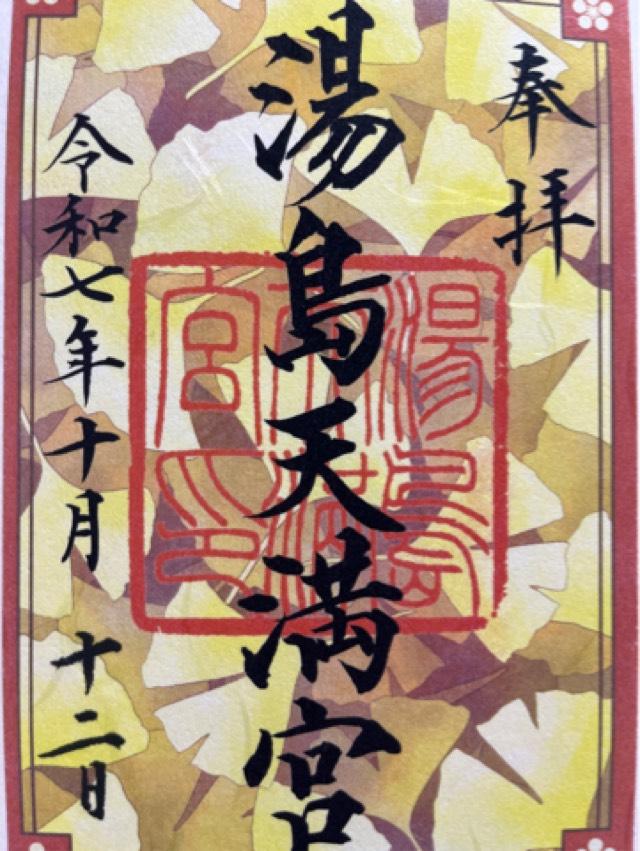 奉拝
湯島天満宮
湯島
天満
宮印
令和七年十月十二日